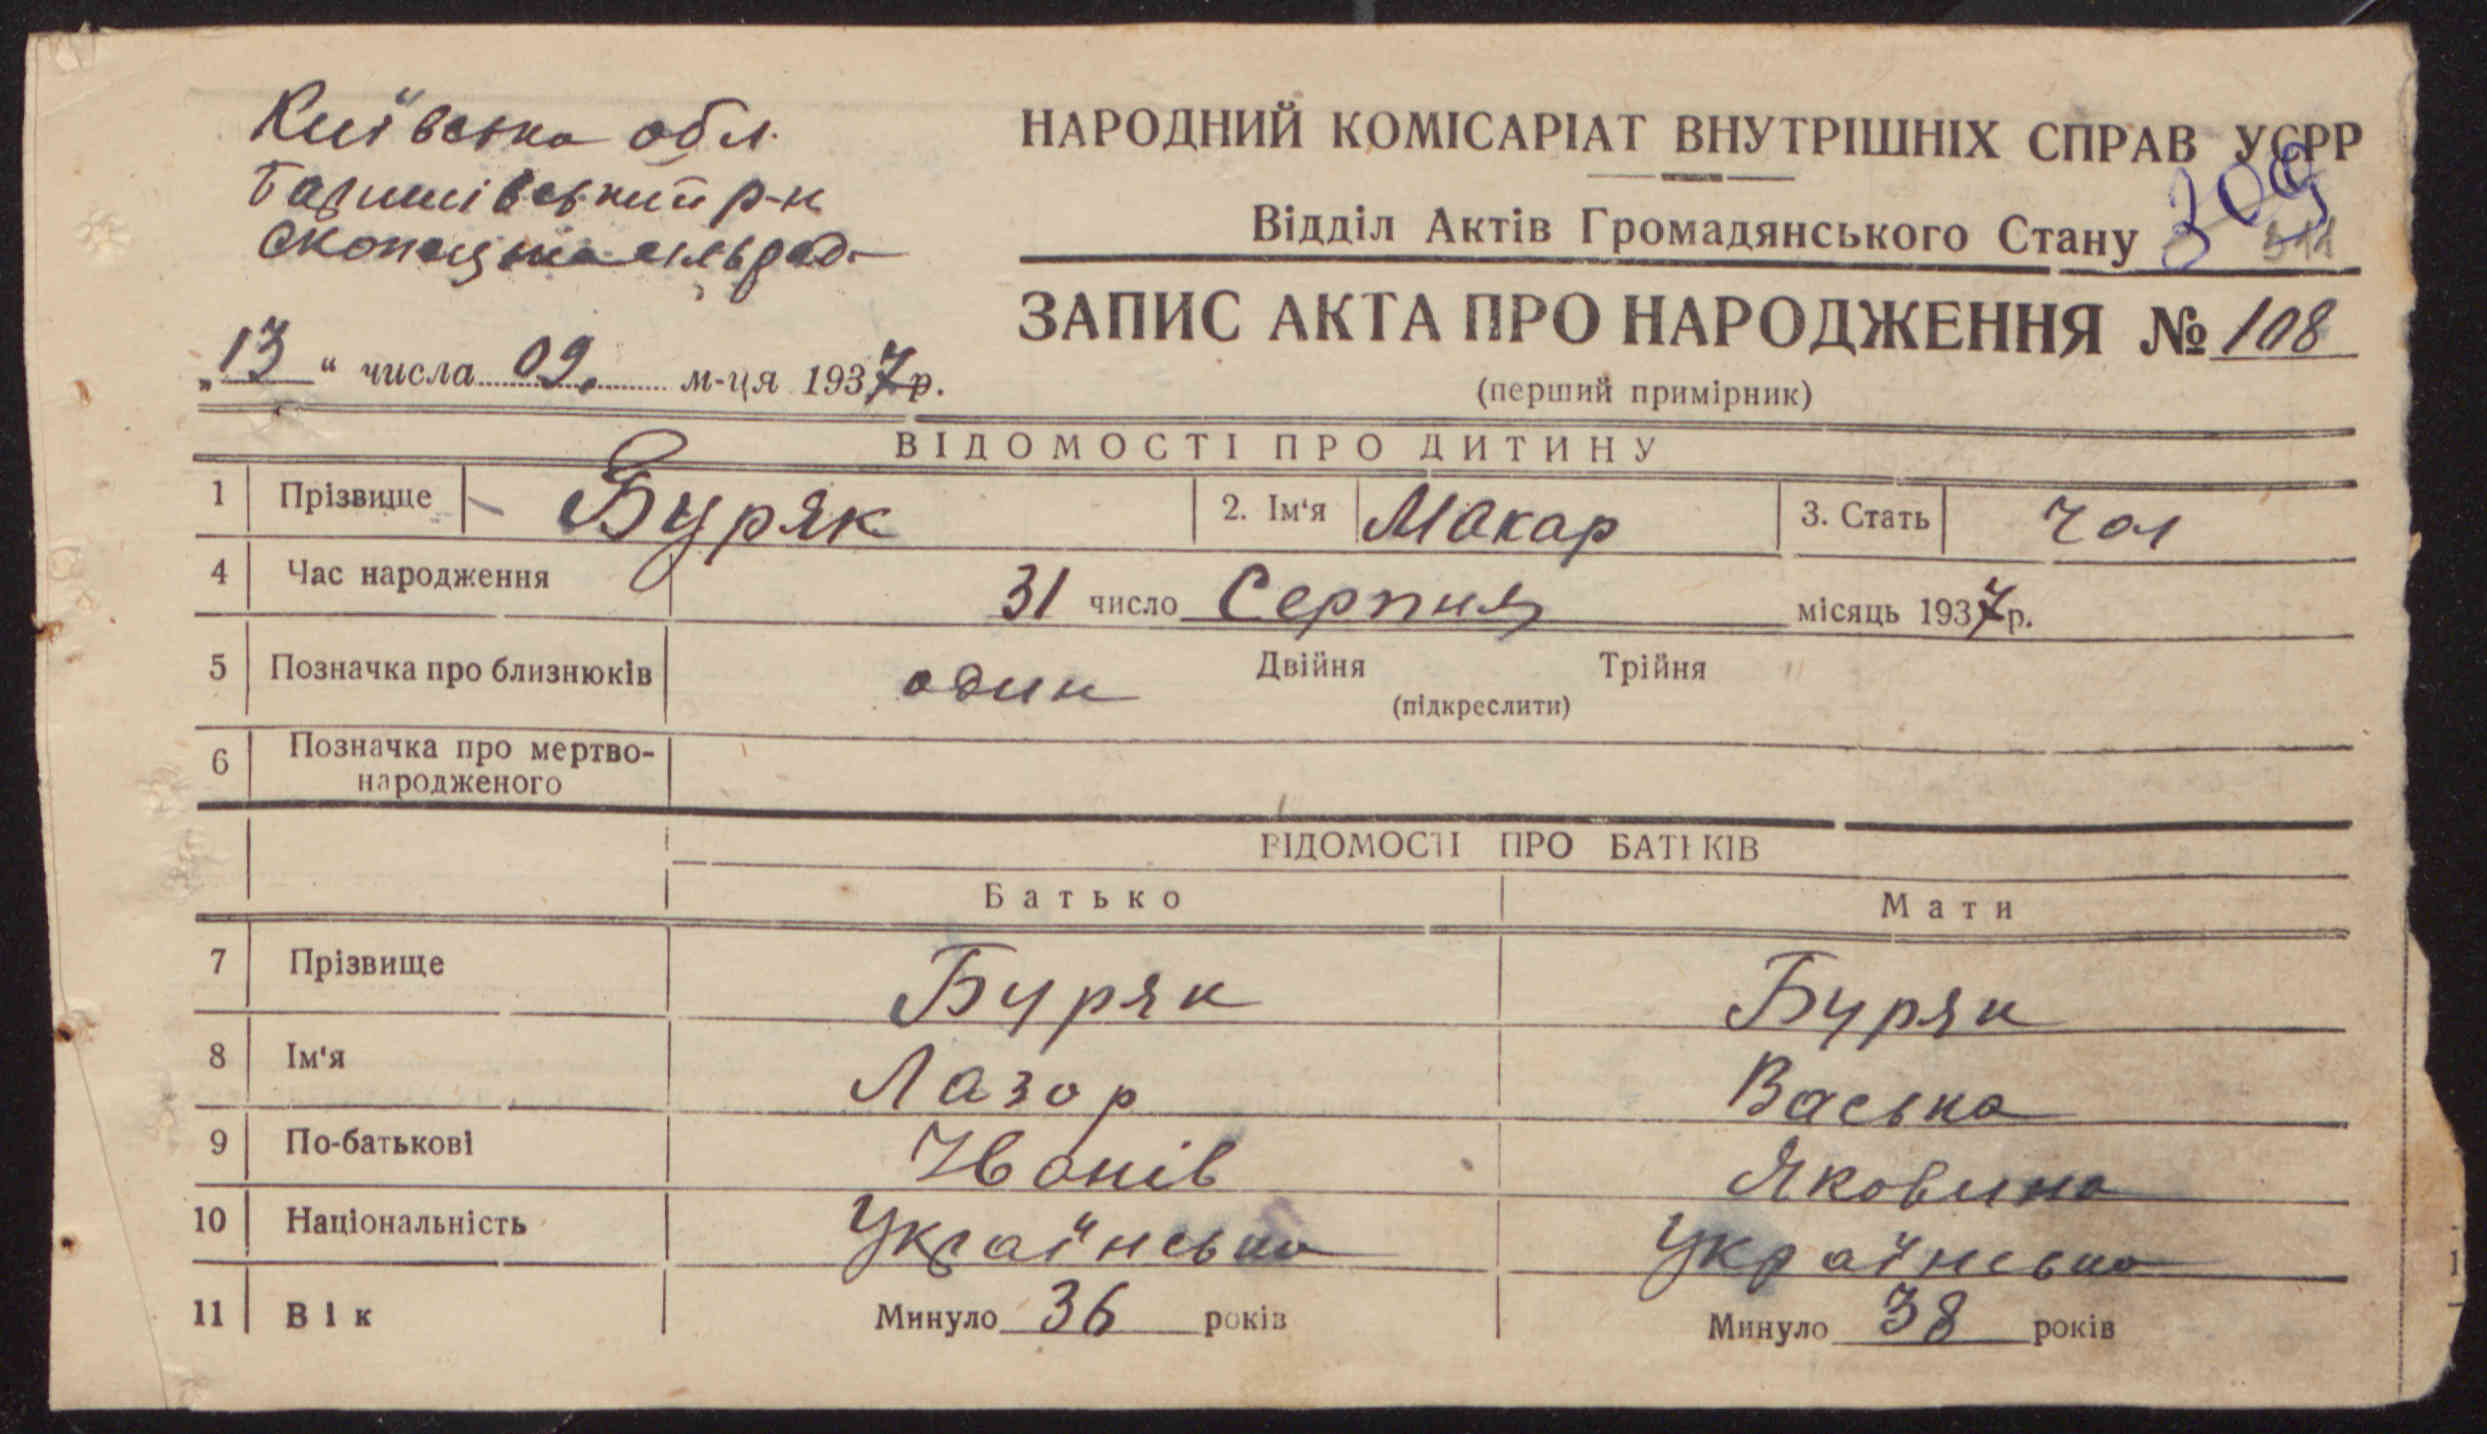 Київська обл.
Баришівський р-н
Скопецька сільрад.
НАРОДНИЙ КОМІСАРІАТ ВНУТРІШНІХ СПРАВ УСРР
Відділ Актів Громадянського Стану
309
311
ЗАПИС АКТА ПРО НАРОДЖЕННЯ № 108
„13“ числа 09. м-ця 1937р.
(перший примірник)
ВІДОМОСТІ ПРО ДИТИНУ
1 Прізвище Буряк 2. Ім'я Макар 3. Стать чол
4 Час народження 31 число Серпня місяць 1937р.
5 Позначка про близнюків один Двійня Трійня
(підкреслити)
6 Позначка про мертво-
народженого
ВІДОМОСТІ ПРО БАТЬКІВ
Батько Мати
7 Прізвище Буряк Буряк
8 Ім'я Лазор Васька
9 По-батькові Іванів Яковина
10 Національність Українська Українська
11 Вік Минуло 36 років Минуло 38 років